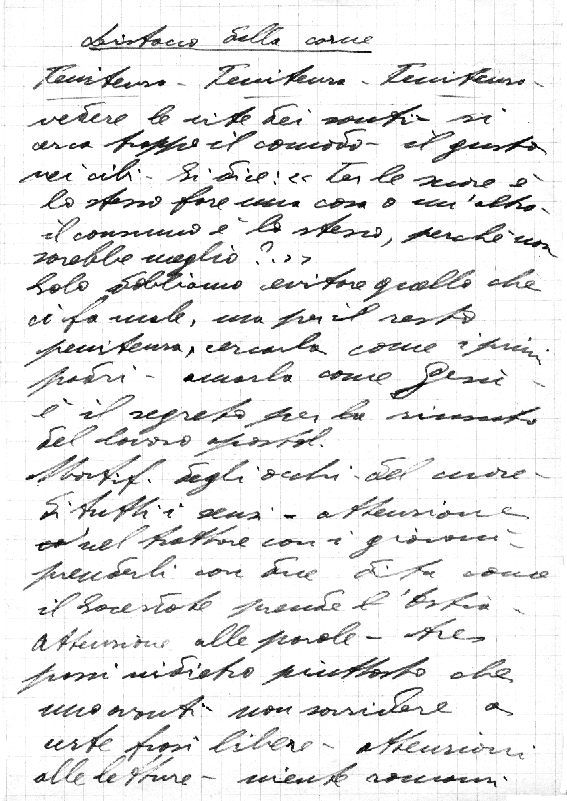 Distacco dalla carne
Penitenza - Penitenza - Penitenza -
vedere le vite dei santi - si
cerca troppo il comodo - il gusto
nei cibi - Si dice: "Per le suore è
lo stesso fare una cosa o un'altra
il consumo è lo stesso, perché non
sarebbe meglio?..."
Solo dobbiamo evitare quello che
ci fa male, ma per il resto
penitenza, cercarla come i primi
padri - amarla come Gesù -
è il segreto per la riuscita
del lavoro apostol.
Mortif. degli occhi - del cuore -
di tutti i sensi - attenzione
nel trattare con i giovani -
prenderli con due dita come
il Sacerdote prende l'Ostia -
Attenzione alle parole - tre
passi indietro piuttosto che
uno avanti - non sorridere a
certe frasi libere - attenzioni
alle letture - niente romanzi